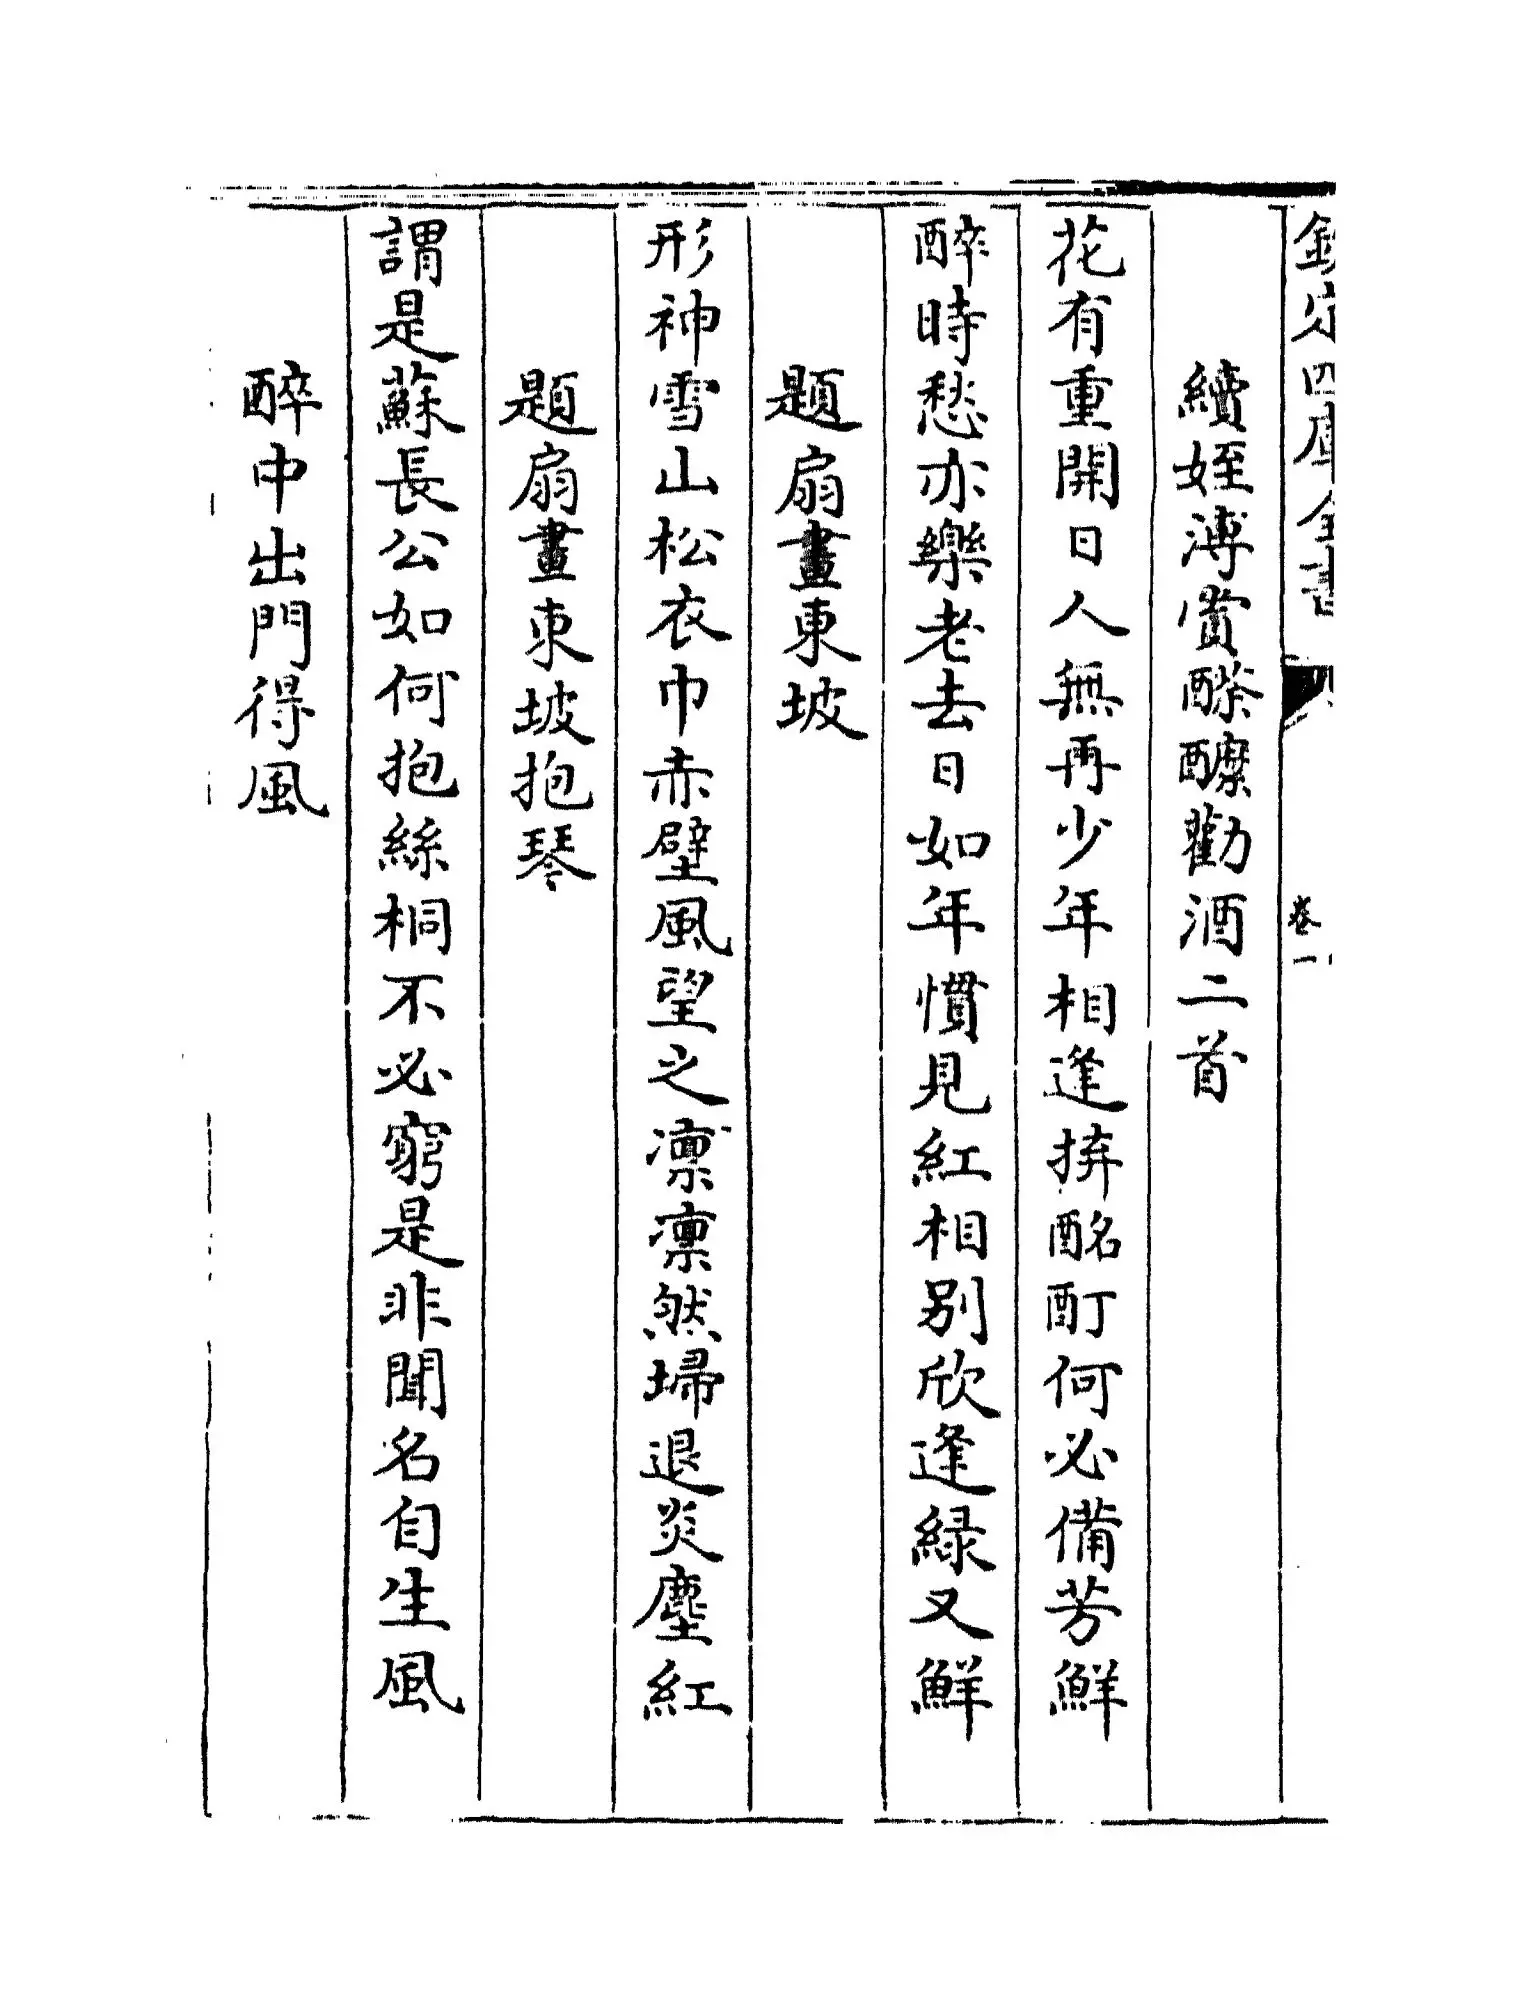 欽定四庫全書
卷一
續姪溥賞酴醾勸酒二首
花有重開日人無再少年相逢拚酩酊何必備芳鮮
醉時愁亦樂老去日如年慣見紅相别欣逢緑又鮮
題扇畫東坡
形神雪山松衣巾赤壁風望之凛凛然埽退炎塵紅
題扇畫東坡抱琴
謂是蘇長公如何抱絲桐不必窮是非聞名自生風
醉中出門得風